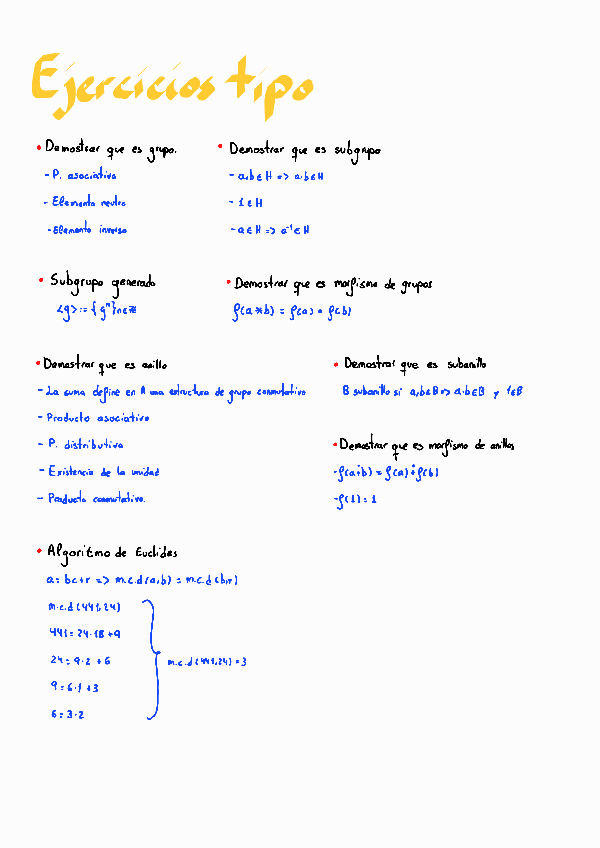 Ejercicios tipo
• Demostrar que es grupo.
- P. asociativa
- Elemento neutro
- Elemento inverso
• Demostrar que es subgrupo
- a,b∈H => a·b∈H
- 1∈H
- a∈H => a⁻¹∈H
• Subgrupo generado
<g> := {gⁿ}n∈ℤ
• Demostrar que es morfismo de grupos
f(a*b) = f(a) * f(b)
• Demostrar que es anillo
- La suma define en A una estructura de grupo conmutativo
- Producto asociativo
- P. distributiva
- Existencia de la unidad
- Producto conmutativo.
• Demostrar que es subanillo
B subanillo si a,b∈B => a·b∈B y 1∈B
• Demostrar que es morfismo de anillos
- f(a+b) = f(a)+f(b)
- f(1) = 1
• Algoritmo de Euclides
a = bc+r => m.c.d(a,b) = m.c.d(b,r)
m.c.d(441,24)
441 = 24·18 +9
24 = 9·2 + 6
9 = 6·1 +3
6 = 3·2
m.c.d(441,24) = 3